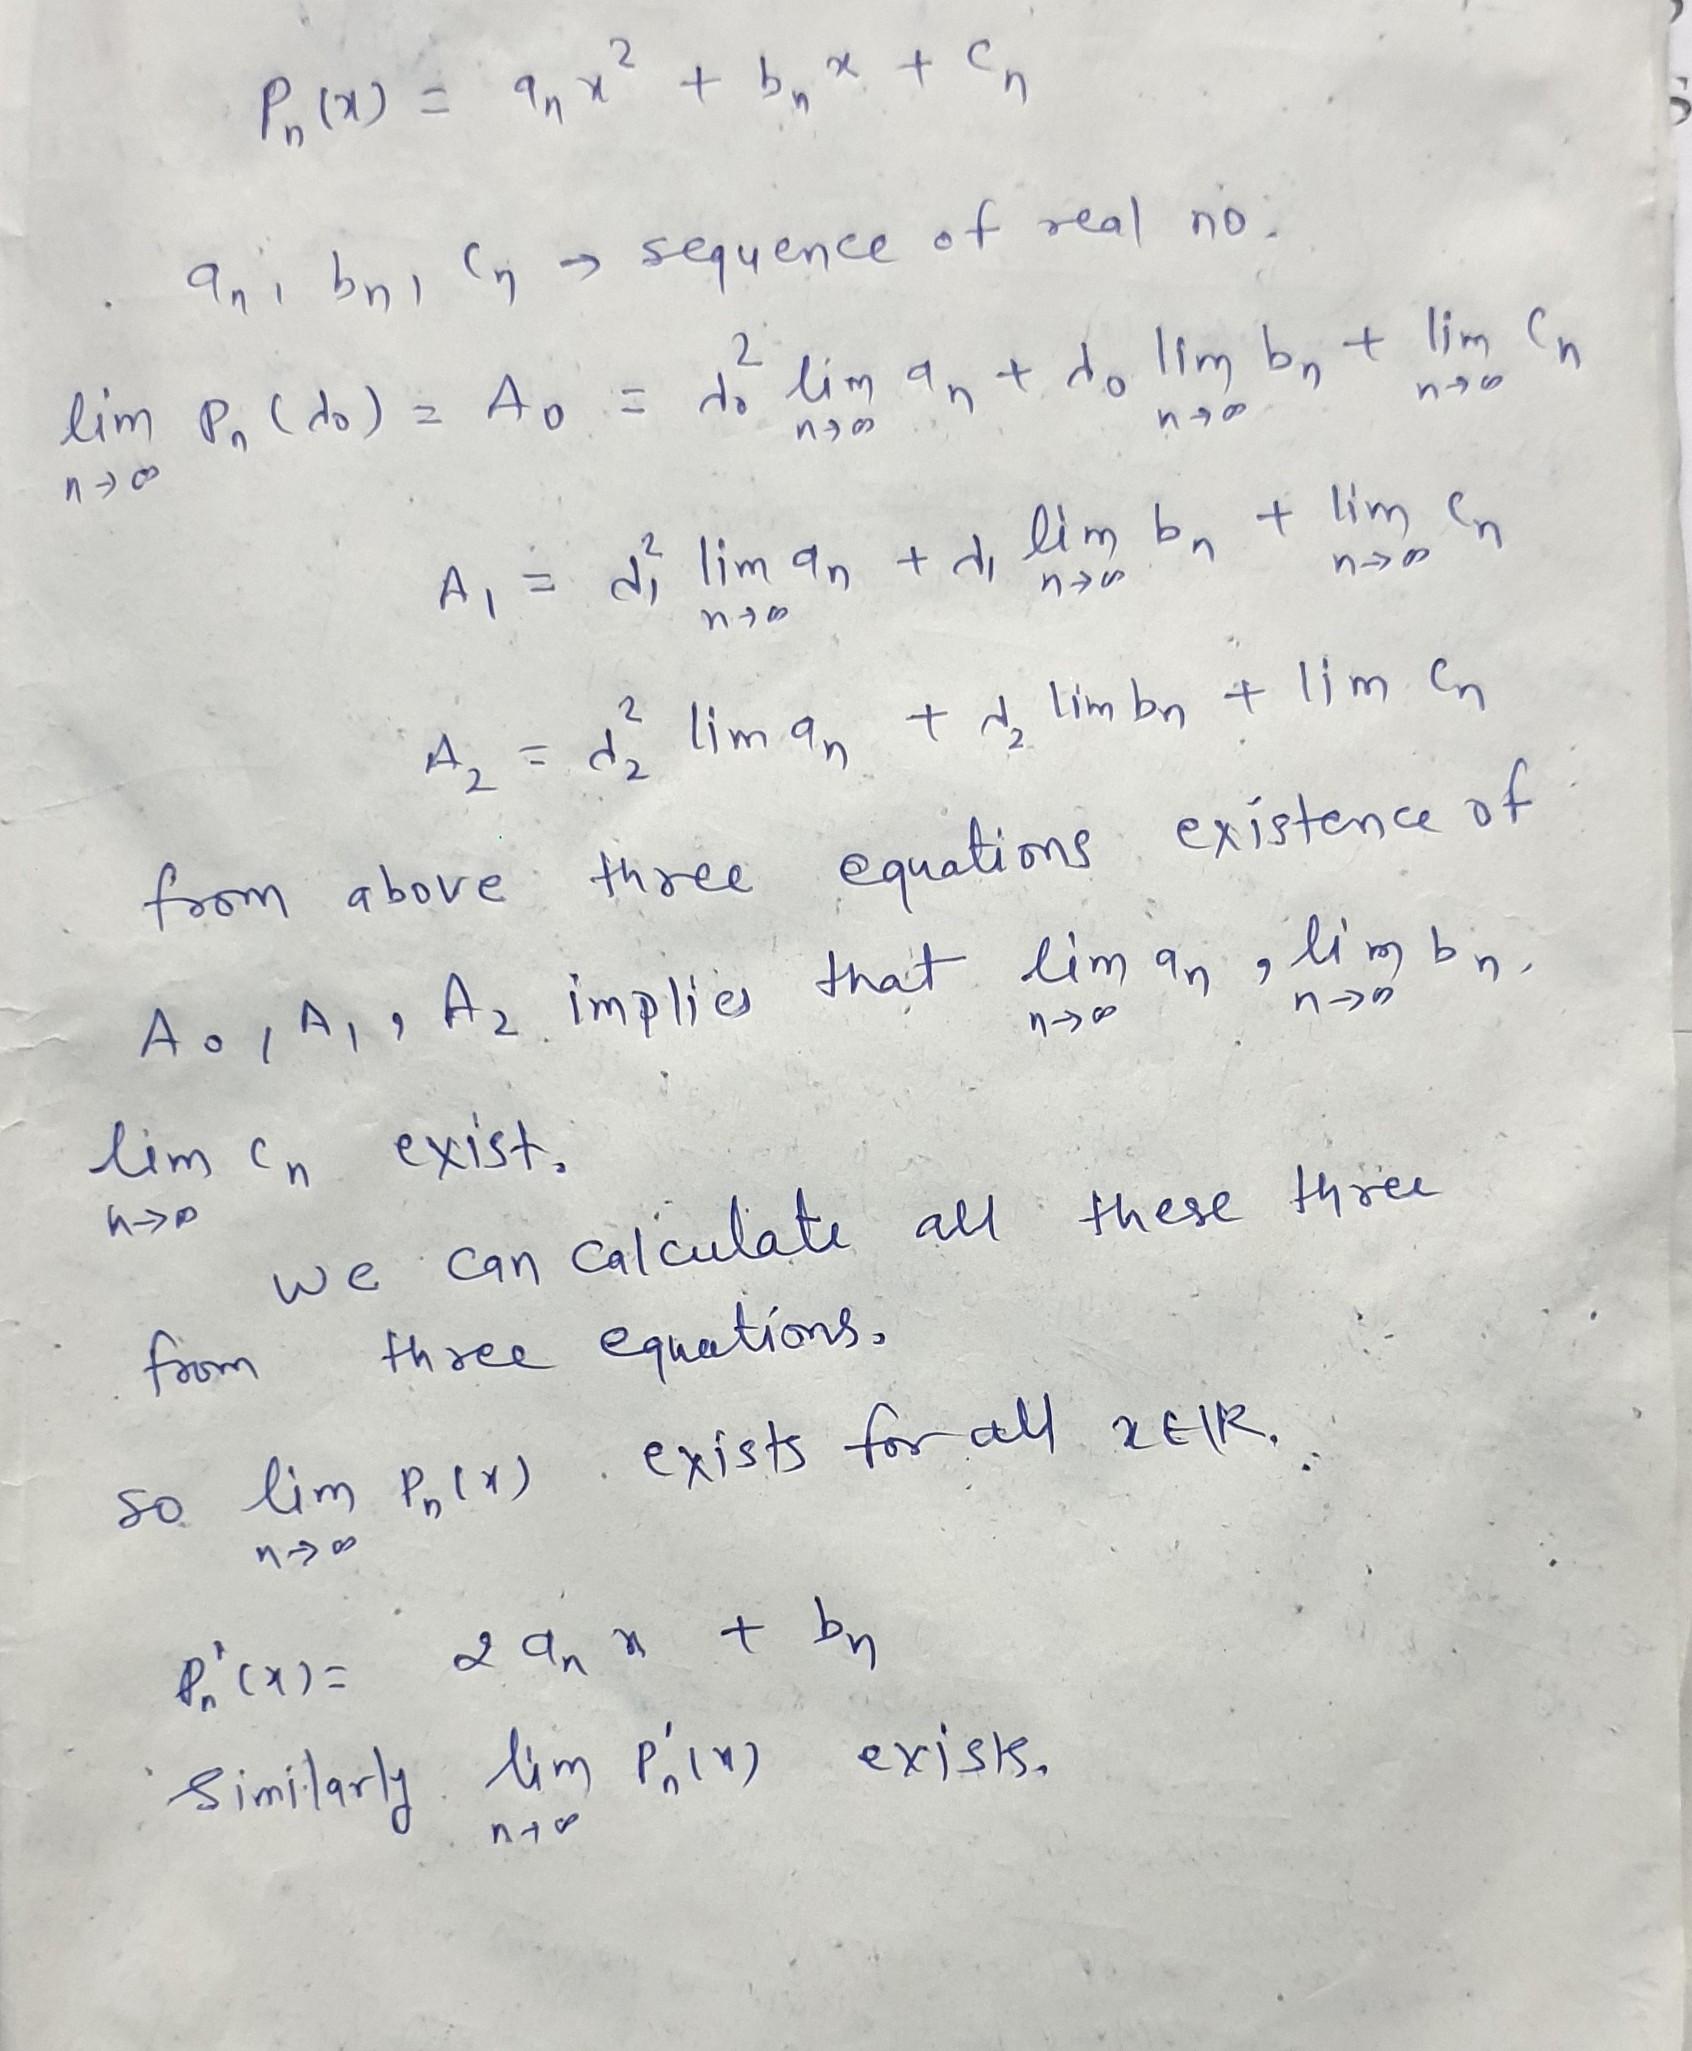 Pₙ(x) = aₙx² + bₙx + cₙ
aₙ, bₙ, cₙ → sequence of real no.
lim n→∞ Pₙ(d₀) = A₀ = d₀² lim n→∞ aₙ + d₀ lim n→∞ bₙ + lim n→∞ cₙ
A₁ = d₁² lim n→∞ aₙ + d₁ lim n→∞ bₙ + lim n→∞ cₙ
A₂ = d₂² lim aₙ + d₂ lim bₙ + lim cₙ
from above three equations existence of
A₀, A₁, A₂ implies that lim n→∞ aₙ, lim n→∞ bₙ,
lim n→∞ cₙ exist.
we can calculate all these three
from three equations.
so lim n→∞ Pₙ(x) exists for all x∈ℝ.
Pₙ'(x) = 2aₙx + bₙ
Similarly lim n→∞ Pₙ'(x) exists.